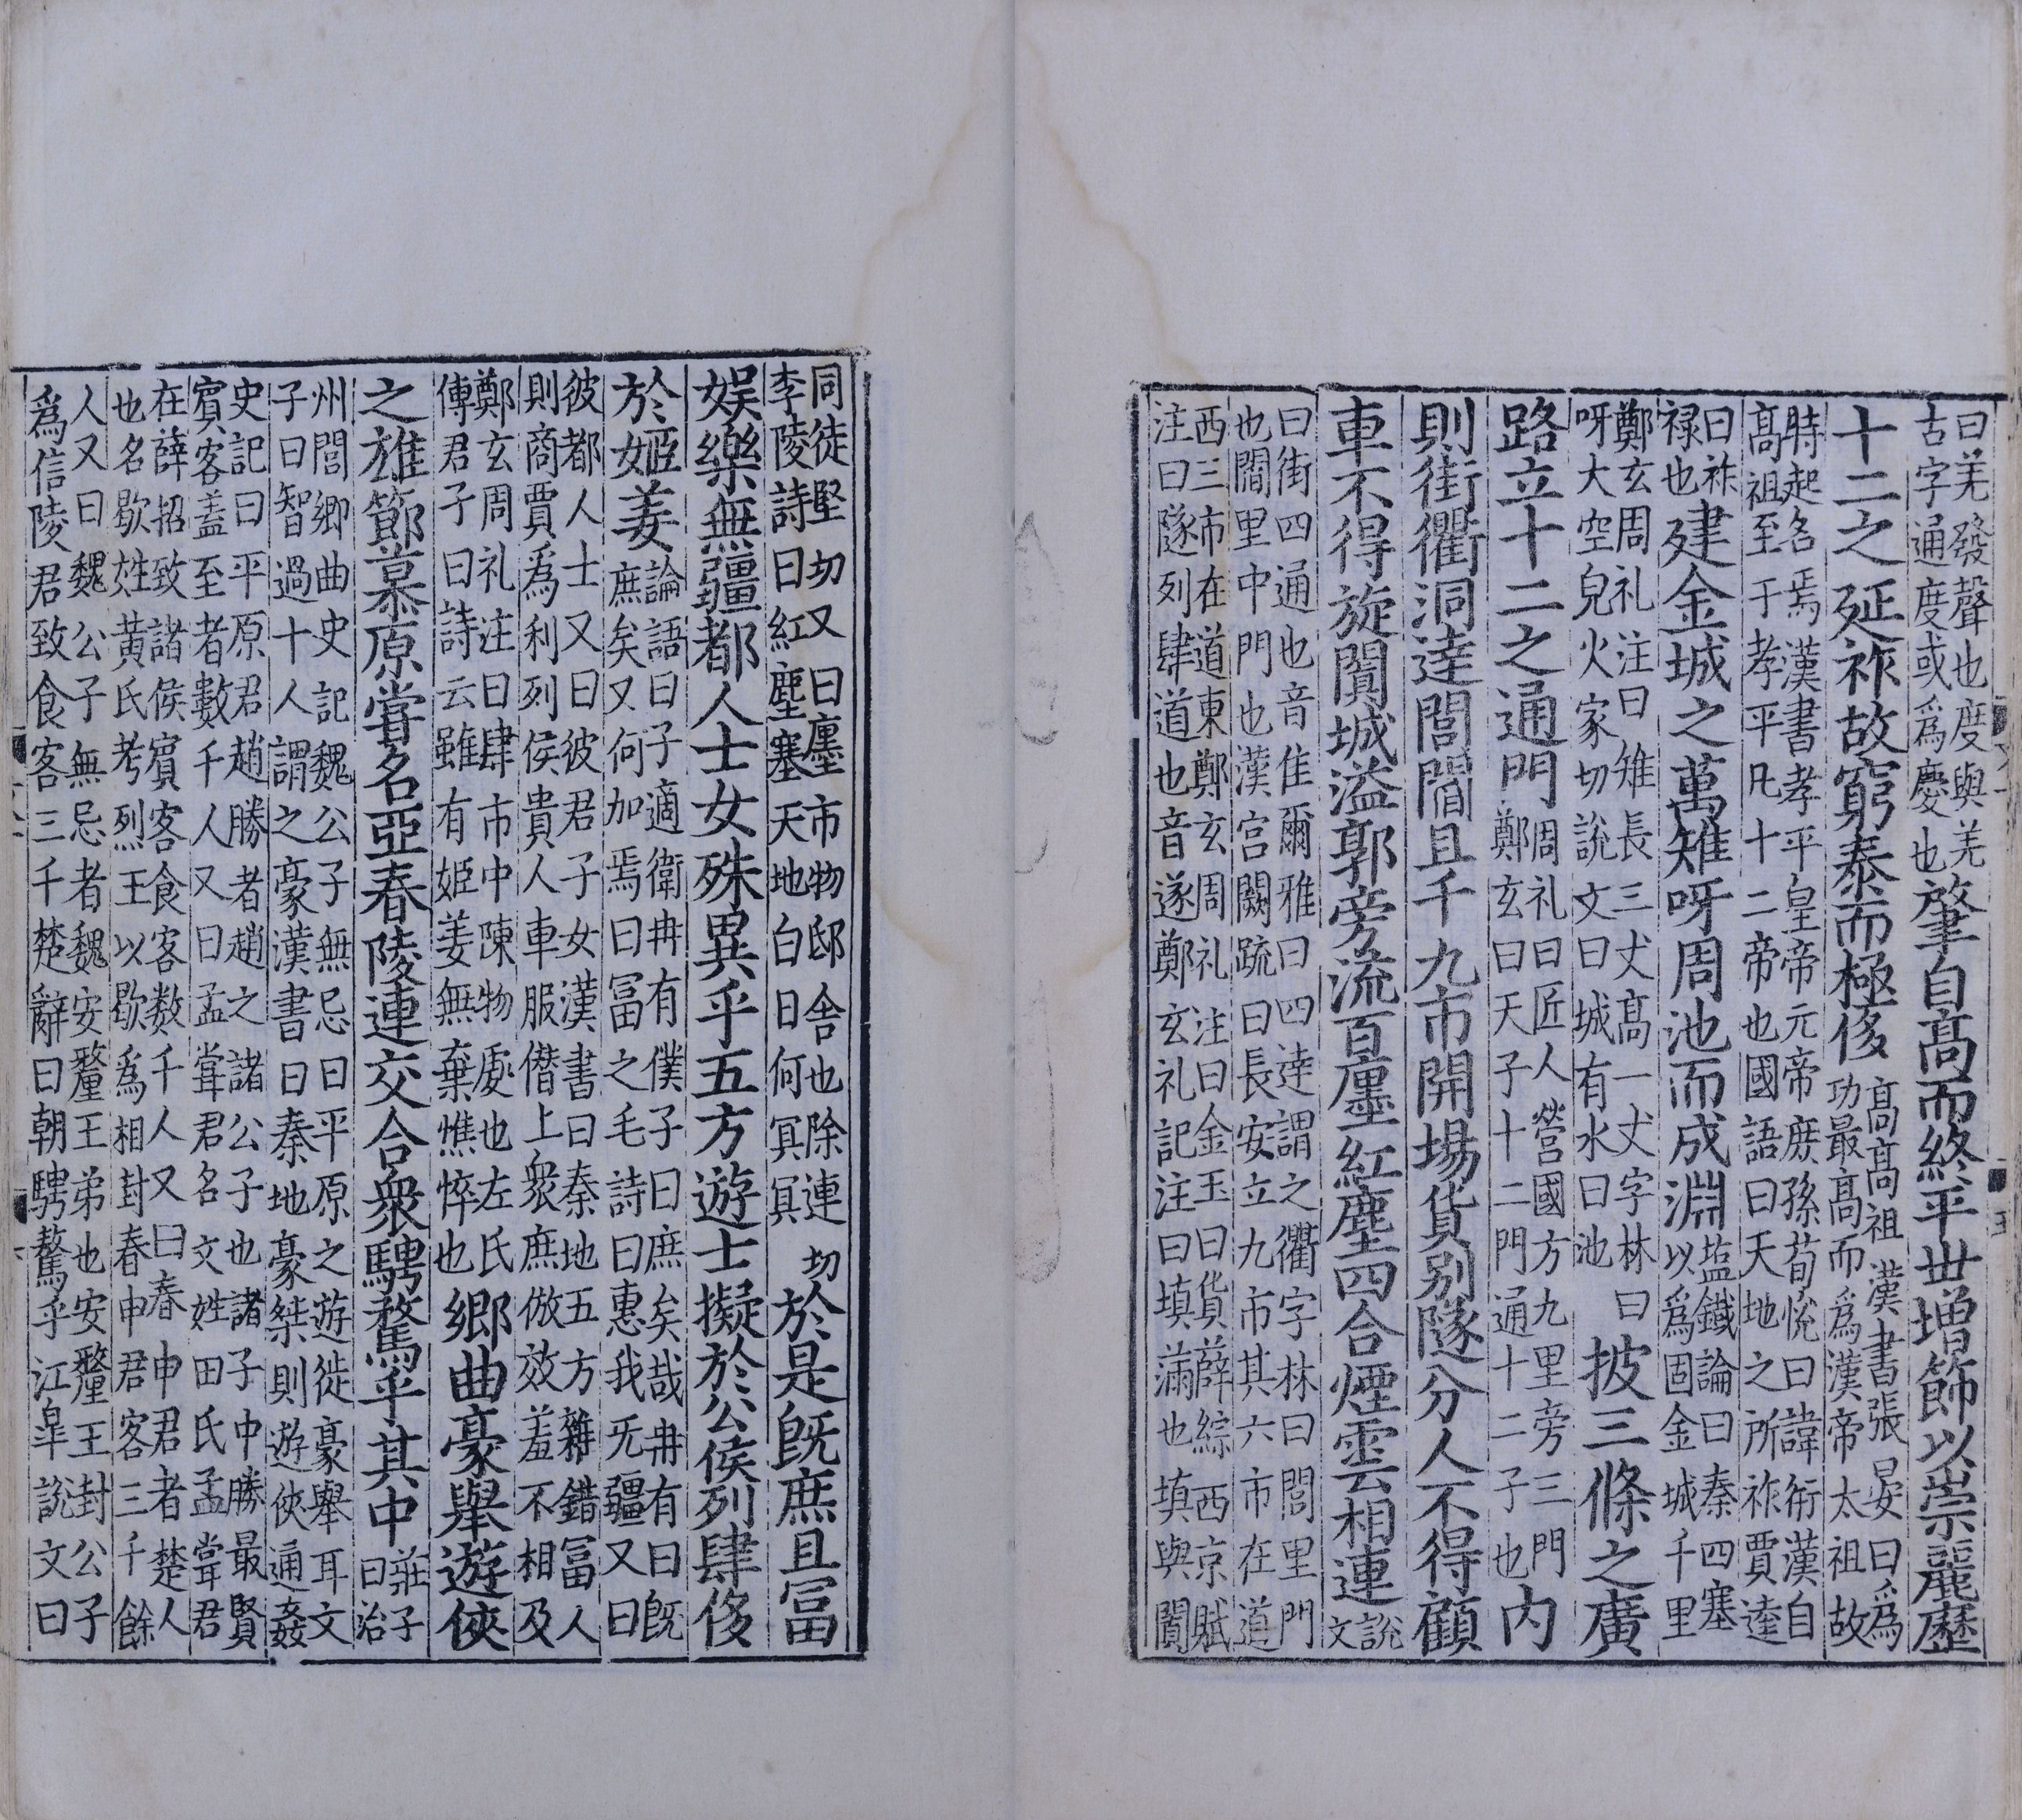 曰羌發聲也度與羌古字通度或爲慶也肇自高而終平丗增飾以崇麗歷
十二之延祚故窮泰而極侈高高祖漢書張晏曰爲功最高而爲漢帝太祖故
時起名焉漢書孝平皇帝元帝庻孫荀恱曰諱衎漢自高祖至于孝平凡十二帝也國語曰天地之所祚賈逵
曰祚禄也建金城之萬雉呀周池而成淵塩鐵論曰秦四塞以爲固金城千里
鄭玄周礼注曰雉長三丈高一丈字林曰呀大空皃火家切說文曰城有水曰池披三條之廣
路立十二之通門周礼曰匠人營國方九里旁三門鄭玄曰天子十二門通十二子也内
則街衢洞達閭閻且千九市開場貨别隧分人不得顧
車不得旋闐城溢郭旁流百廛紅塵四合煙雲相連說文
曰街四通也音佳爾雅曰四達謂之衢字林曰閭里門也閻里中門也漢宮闕疏曰長安立九市其六市在道
西三市在道東鄭玄周礼注曰金玉曰貨薛綜西京賦注曰隧列肆道也音遂鄭玄礼記注曰填滿也填與闐
同徒堅切又曰廛市物邸舍也除連切李陵詩曰紅塵塞天地白日何冥冥於是旣庶且冨
娛樂無疆都人士女殊異乎五方遊士擬於公侯列肆侈
於姬姜論語曰子適衛冉有僕子曰庶矣哉冉有曰旣庶矣又何加焉曰冨之毛詩曰惠我无疆又曰
彼都人士又曰彼君子女漢書曰秦地五方雜錯冨人則商賈爲利列侯貴人車服僭上衆庶倣效羞不相及
鄭玄周礼注曰肆市中陳物處也左氏傳君子曰詩云雖有姬姜無棄憔悴也鄉曲豪舉遊俠
之雄節慕原嘗名亞春陵連交合衆騁騖乎其中莊子曰治
州閭鄉曲史記魏公子無忌曰平原之遊徙豪舉耳文子曰智過十人謂之豪漢書曰秦地豪桀則遊俠通姦
史記曰平原君趙勝者趙之諸公子也諸子中勝最賢賓客蓋至者數千人又曰孟甞君名文姓田氏孟甞君
在薛招致諸侯賓客食客数千人又曰春申君者楚人也名歇姓黃氏考烈王以歇爲相封春申君客三千餘
人又曰魏公子無忌者魏安釐王弟也安釐王封公子爲信陵君致食客三千楚辭曰朝騁騖乎江皐說文曰